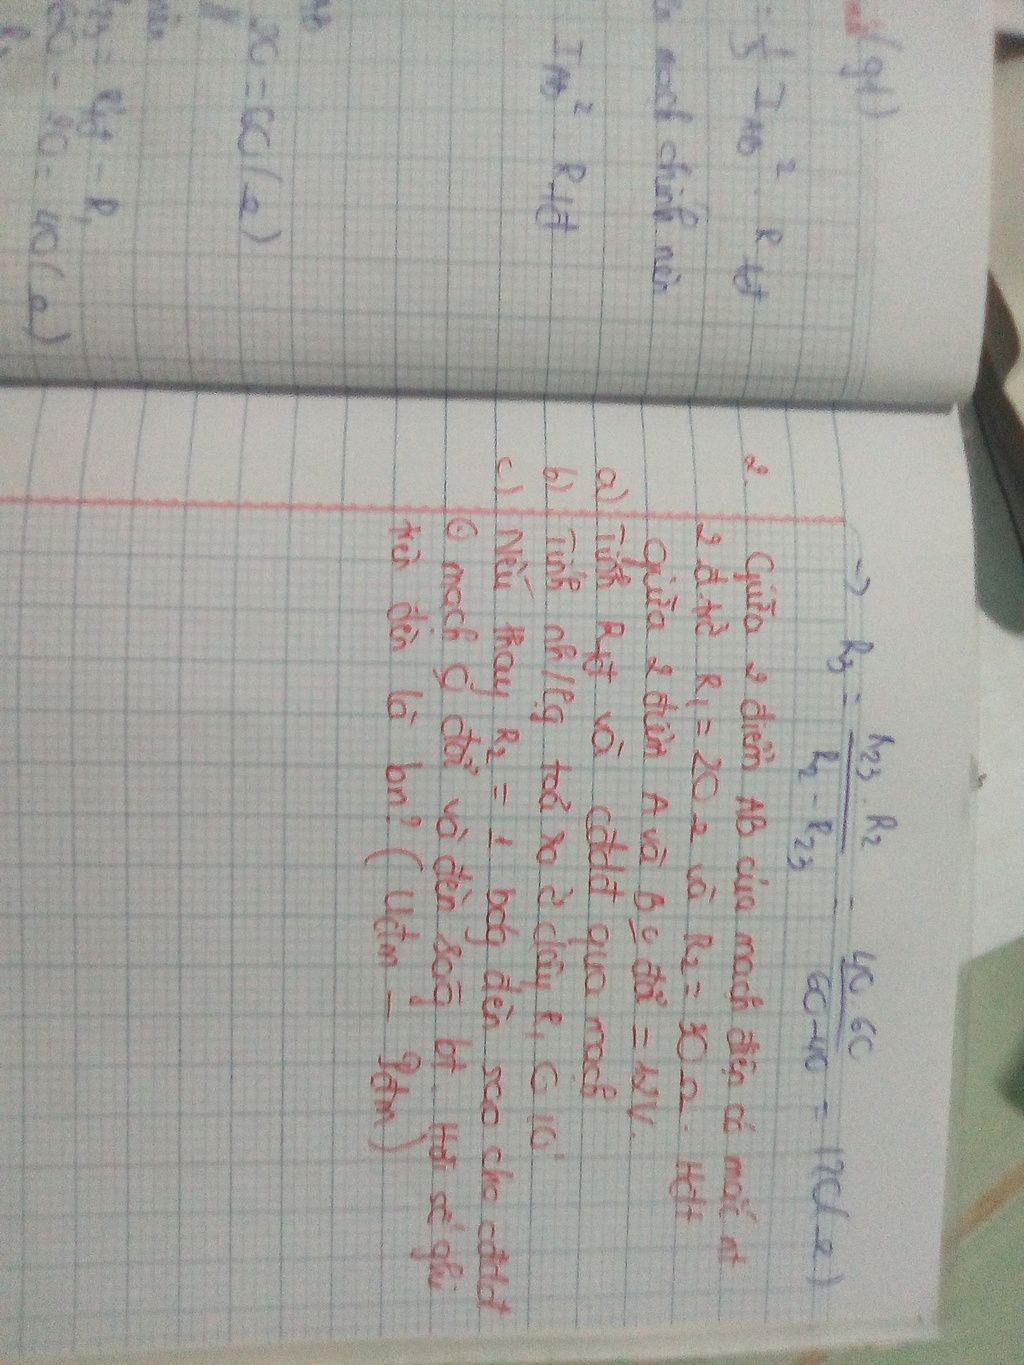 (gt)
1/3 I_AB² . R_tđ
mạch chính nên
I_AB² R_tđ
20 = 60 (Ω)
= R_tđ - R₁
- 20 = 40 (Ω)
→ R₃ = (R₂₃ . R₂)/(R₂ - R₂₃) = (40.60)/(60-40) = 120 (Ω)
2. Giữa 2 điểm AB của mạch điện có mắc nt
2 đ.trở R₁ = 20 Ω và R₂ = 30 Ω. Hđt
giữa 2 điểm A và B c đổi = 12V.
a) Tính R_tđ và cđdđ qua mạch
b) Tính nh/lg toả ra ở dây R₁ 10'
c) Nếu thay R₂ = 1 bóg đèn sao cho cđdđ
mạch đổi và đèn ság bt. Hỏi số ghi
trên đèn là bn? (Uđm - Pđm)